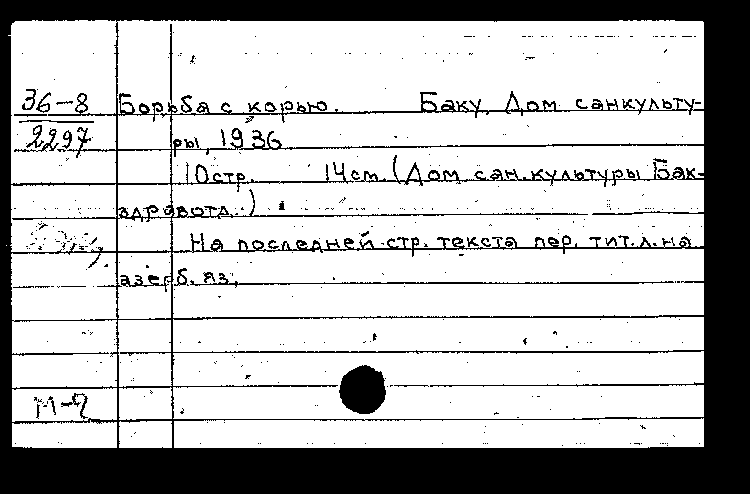 36-8
2297
Борьба с корью. Баку, Дом санкульту-
ры, 1936
10стр. 14см. (Дом сан.культуры Бак-
здравотд.)
На последней стр. текста пер. тит.л. на
азерб. яз.